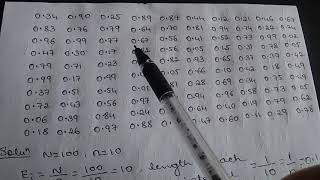 0.34 0.90 0.25 0.89 0.87 0.44 0.12 0.21 0.46 0.67
0.83 0.76 0.79 0.64 0.70 0.81 0.94 0.74 0.22 0.74
0.96 0.99 0.77 0.67 0.56 0.41 0.52 0.73 0.99 0.02
0.47 0.30 0.17 0.56 0.05 0.45 0.31 0.78 0.05
0.79 0.71 0.23 0.19 0.82 0.93 0.65 0.37 0.39 0.42
0.99 0.17 0.99 0.46 0.05 0.66 0.10 0.42 0.18 0.49
0.37 0.51 0.54 0.01 0.81 0.28 0.69 0.34 0.75 0.49
0.72 0.43 0.56 0.97 0.30 0.94 0.96 0.58 0.73 0.05
0.06 0.39 0.84 0.24 0.40 0.64 0.40 0.19 0.79 0.62
0.18 0.26 0.97 0.88 0.64 0.47 0.60 0.11 0.29 0.78
N=100, n=10
Ei = N/n = 100/10 = 10, length each
= 1/n = 1/10 = 0.1